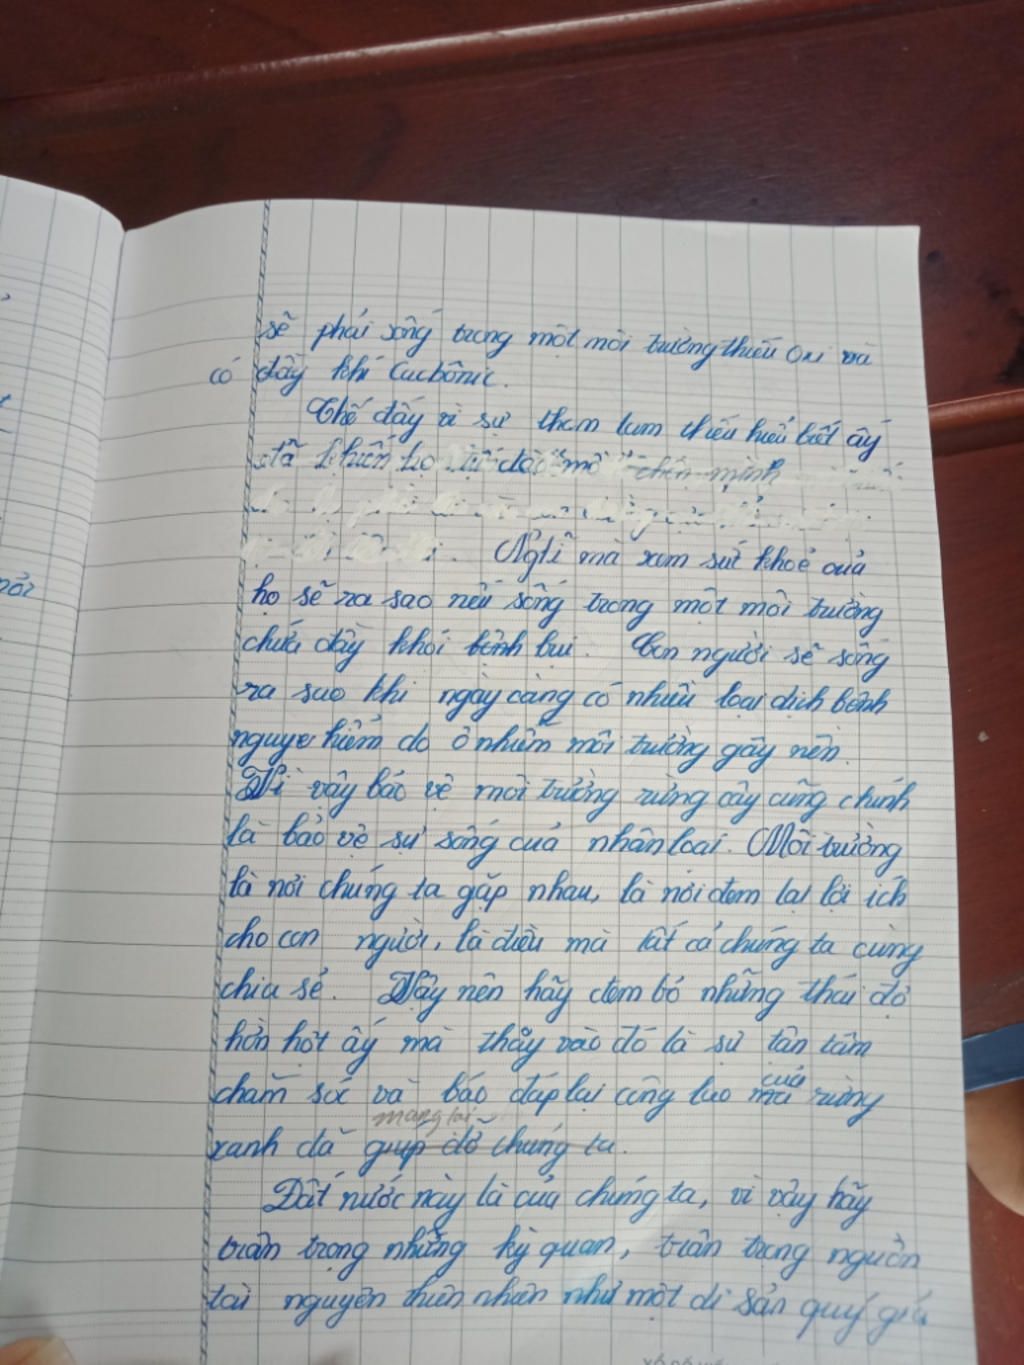 sẽ phải sống trong một môi trường thiếu Oxi và
có đầy khí Cacbônic.
Thế đấy vì sự tham lam thiếu hiểu biết ấy
đã khiến họ mình
Nghĩ mà xem sức khoẻ của
họ sẽ ra sao nếu sống trong một môi trường
chứa đầy khói bệnh bụi. Con người sẽ sống
ra sao khi ngày càng có nhiều loại dịch bệnh
nguye hiểm do ô nhiễm môi trường gây nên.
Vì vậy bảo vệ môi trường rừng cây cũng chính
là bảo vệ sự sống của nhân loại. Môi trường
là nơi chúng ta gặp nhau, là nơi đem lại lợi ích
cho con người, là điều mà tất cả chúng ta cùng
chia sẻ. Vậy nên hãy đem bỏ những thái độ
hời hợt ấy mà thấy vào đó là sự tận tâm
chăm sóc và báo đáp lại công lao của rừng
mang lại
xanh đã giup đỡ chúng ta.
Đất nước này là của chúng ta, vì vậy hãy
trân trọng những kỳ quan, trân trọng nguồn
tài nguyên thiên nhiên như một di sản quý giá